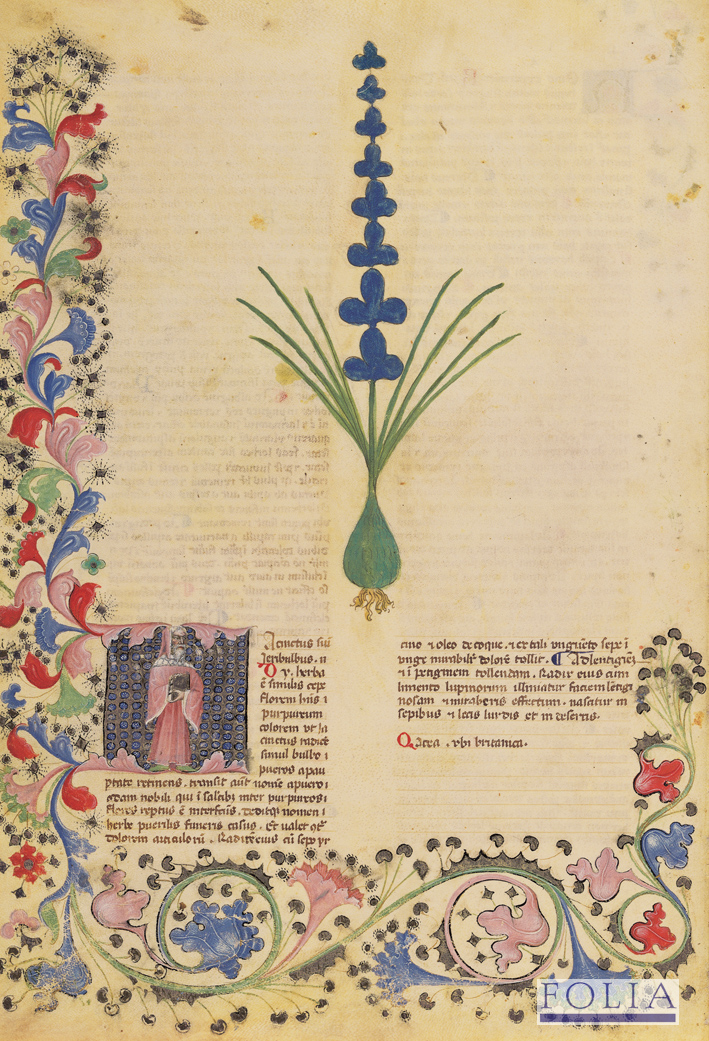 Acinctus siū
Ieribulbus. n
O y. herba
ē similis cepe
florem hūs i
purpureum
colorem ut Ia
cinctus radice
simul bulbo i
pueros apau
ptate retinens. transit aūt nomē apuero i
nobili qui i saltibʒ inter purpureos i
flores reptus ē interfecis. deditqʒ nomen i
herbe puerilis funeris casus. Et ualet
dolorem auriculoꝝ. Radix eius cū sepo yr
cino ⁊ oleo decoque. ⁊ ex tali unguēto sepe i
unge murabilr̄ dolorē tollit. ¶ Ad lentiginē
⁊ ī petiginem tollendam. Radix eius cum
limento lupinorum illiniatur faciem lētigi
nosam ⁊ miraberis effectum. nasatur in
sepibus ⁊ locis luridis et in desertis.
Qacea. ubi britanica.
FOLIA